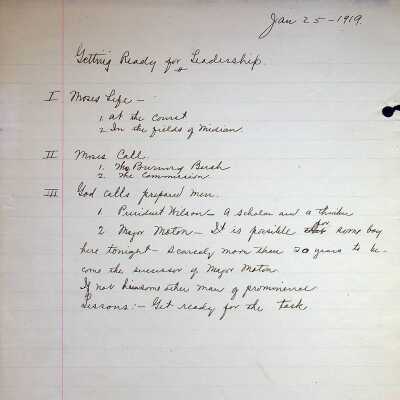 Jan 25 - 1919.
Getting Ready for Leadership.
I Moses Life -
1. At the Court
2. In the fields of Midian.
II Moses Call.
1. The Burning Bush
2. The Commission.
III God calls prepared men.
1. President Wilson - A scholar and a thinker
2. Major Moton - It is possible for some boy
here tonight - scarcely more than 20 years to be-
come the successor of Major Moton.
If not him some other man of prominence
Lessons: - Get ready for the task